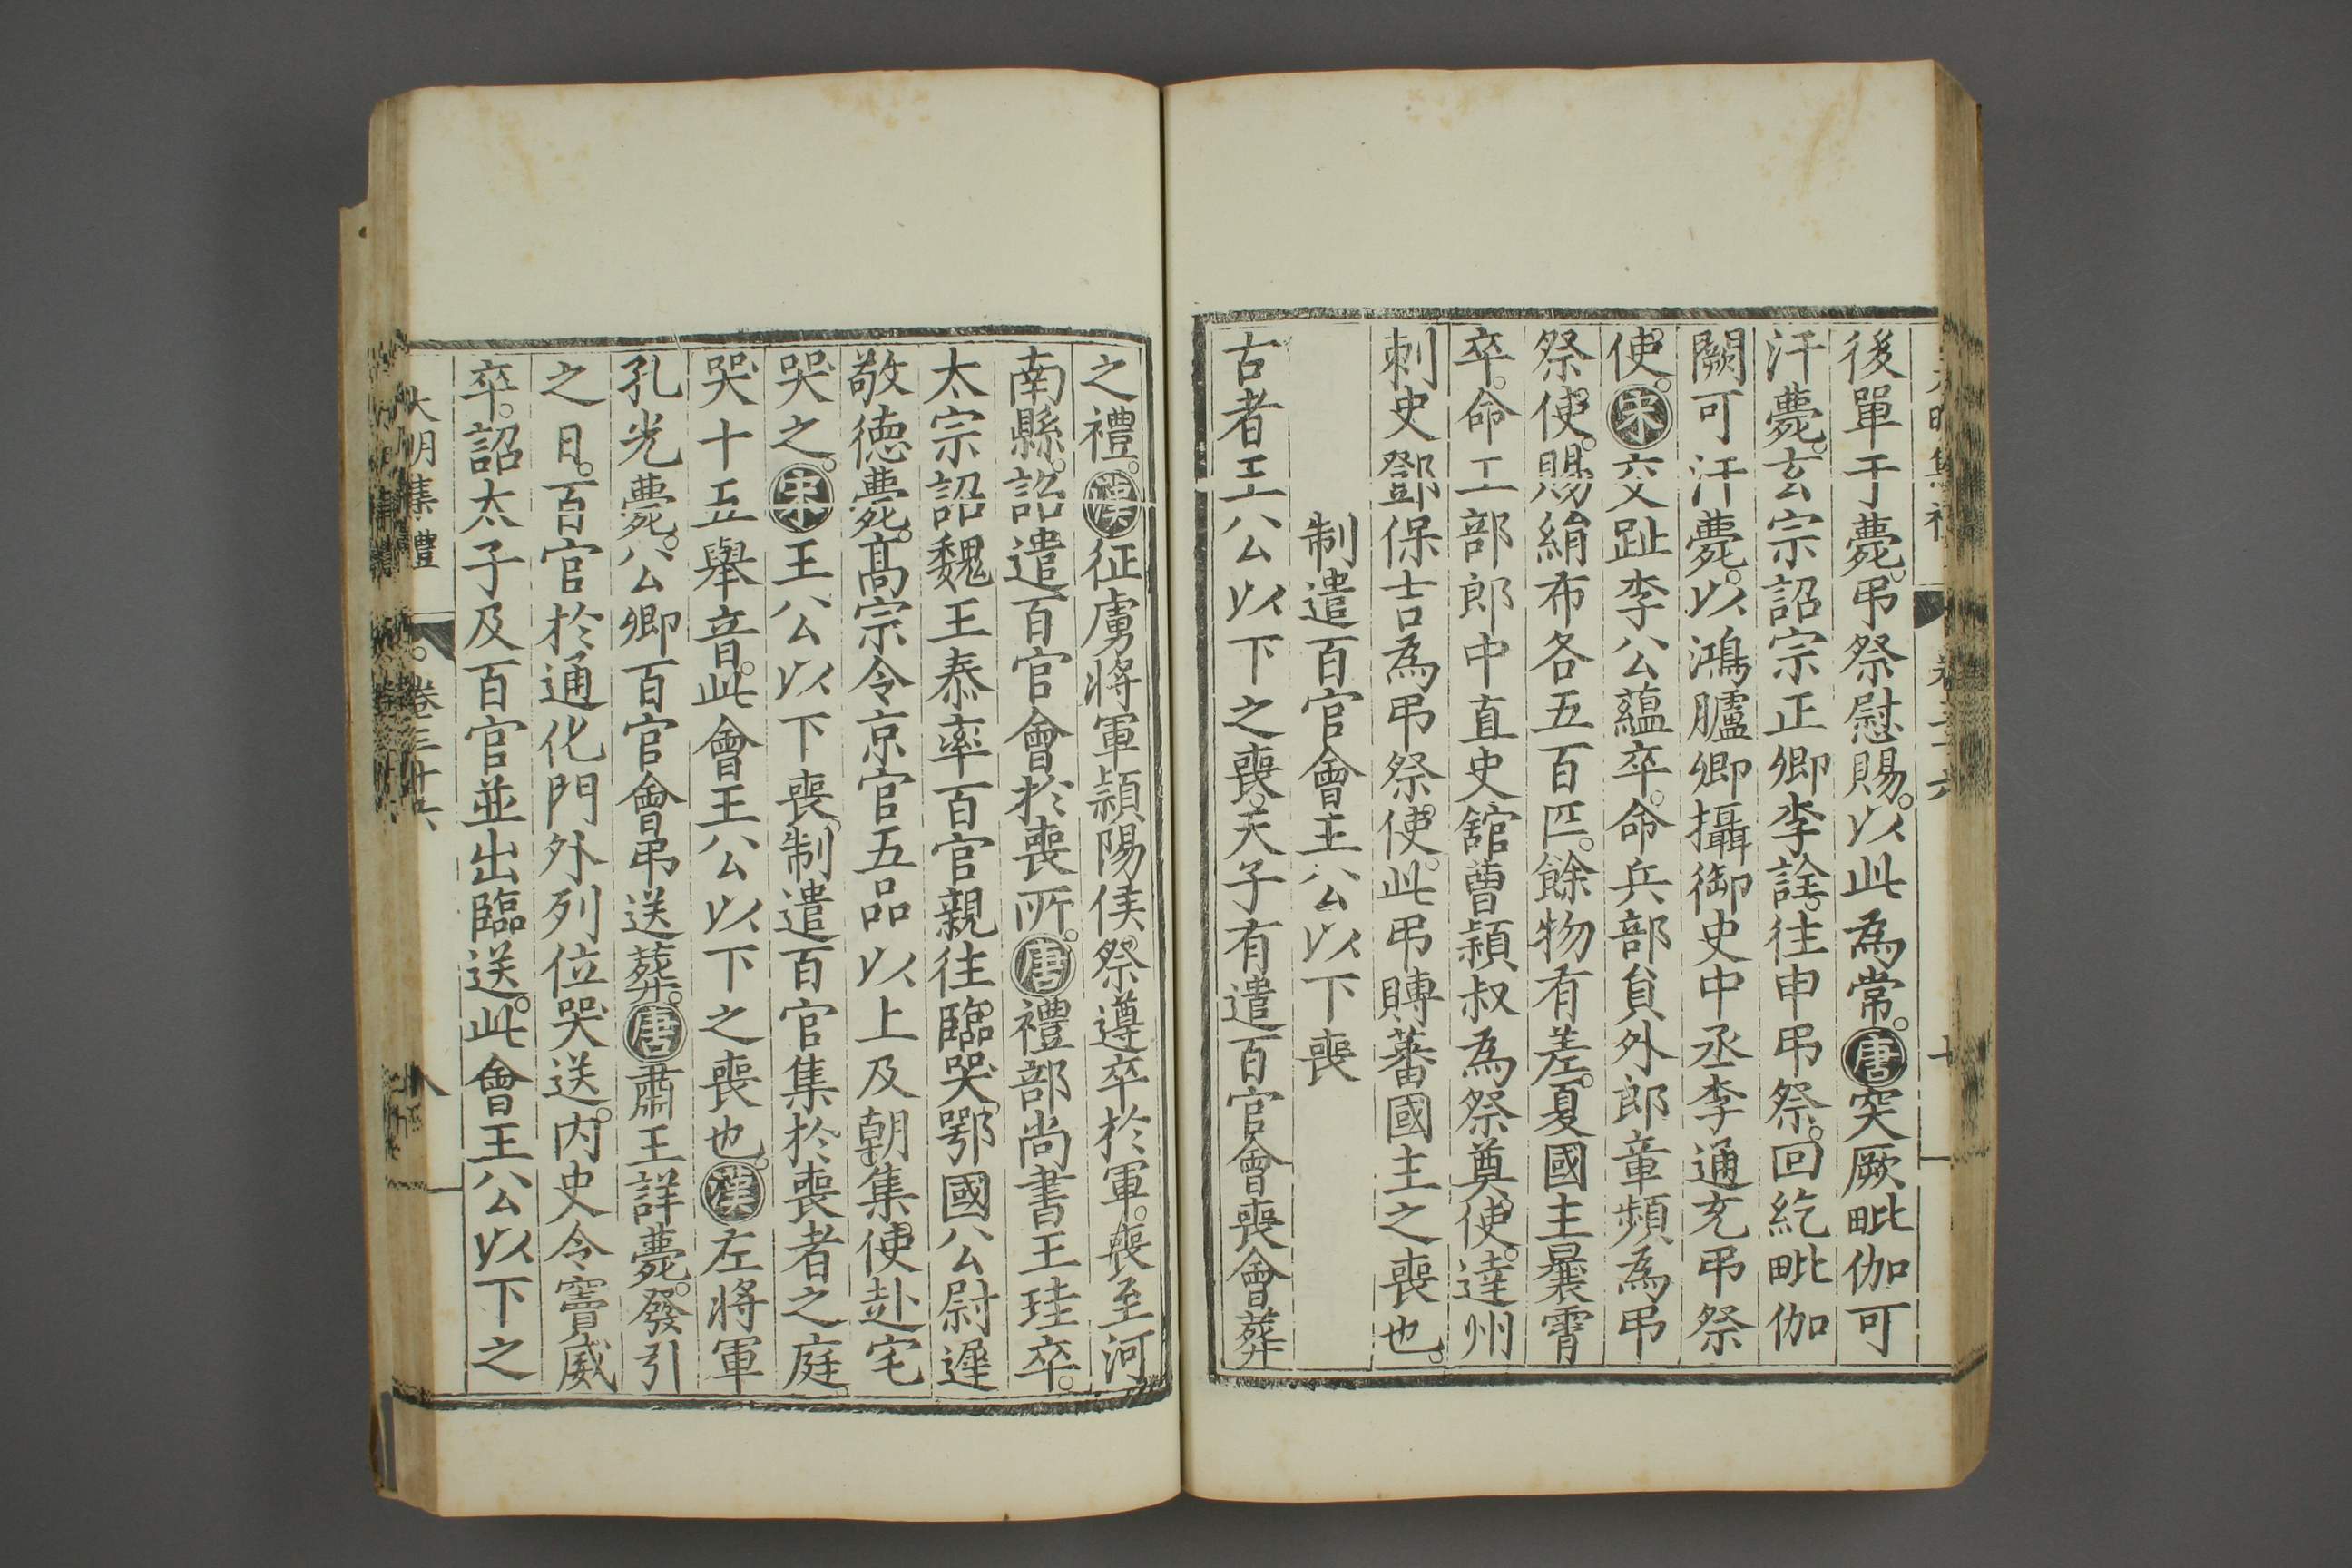 後單于薨。弔祭慰賜。以此為常。唐突厥毗伽可
汗薨。玄宗詔宗正卿李詮。往申弔祭。回紇毗伽
闕可汗薨。以鴻臚卿攝御史中丞李通充弔祭
使。宋交趾李公蘊卒。命兵部負外郎章頻為弔
祭使。賜絹布各五百匹。餘物有差。夏國主曩霄
卒。命工部郎中直史舘曹穎叔為祭奠使。達州
刺史鄧保吉為弔祭使。此弔賻蕃國主之喪也。
制遣百官會王公以下喪
古者王公以下之喪。天子有遣百官會喪會葬
之禮。漢征虜將軍潁陽侯祭遵卒於軍。喪至河
南縣。詔遣百官會於喪所。唐禮部尚書王珪卒。
太宗詔魏王泰率百官親往臨哭。鄂國公尉遲
敬德薨。高宗令京官五品以上及朝集使赴宅
哭之。宋王公以下喪。制遣百官集於喪者之庭。
哭十五舉音。此會王公以下之喪也。漢左將軍
孔光薨。公卿百官會弔送葬。唐肅王詳薨。發引
之日。百官於通化門外列位哭送。內史令竇威
卒。詔太子及百官並出臨送。此會王公以下之
大明集禮 卷三十六 八